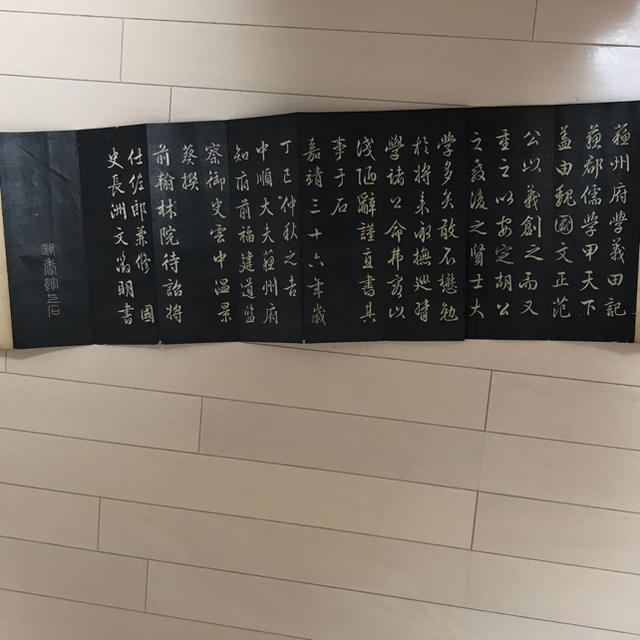 蘓州府學義田記
蘓郡儒學甲天下
盖由魏國文正范
公以義創之而又
重之以安定胡公
之教後之賢士大
學多矣敢不懋勉
於将来溆撫巡脩
學諸公命弗获以
淺陋辭謹直書其
事于石
嘉靖三十六年歳
丁巳仲秋之吉
中順大夫蘓州府
知府前福建道監
察御史雲中温景
葵撰
前翰林院待詔将
仕佐郎兼修國
史長洲文徵明書